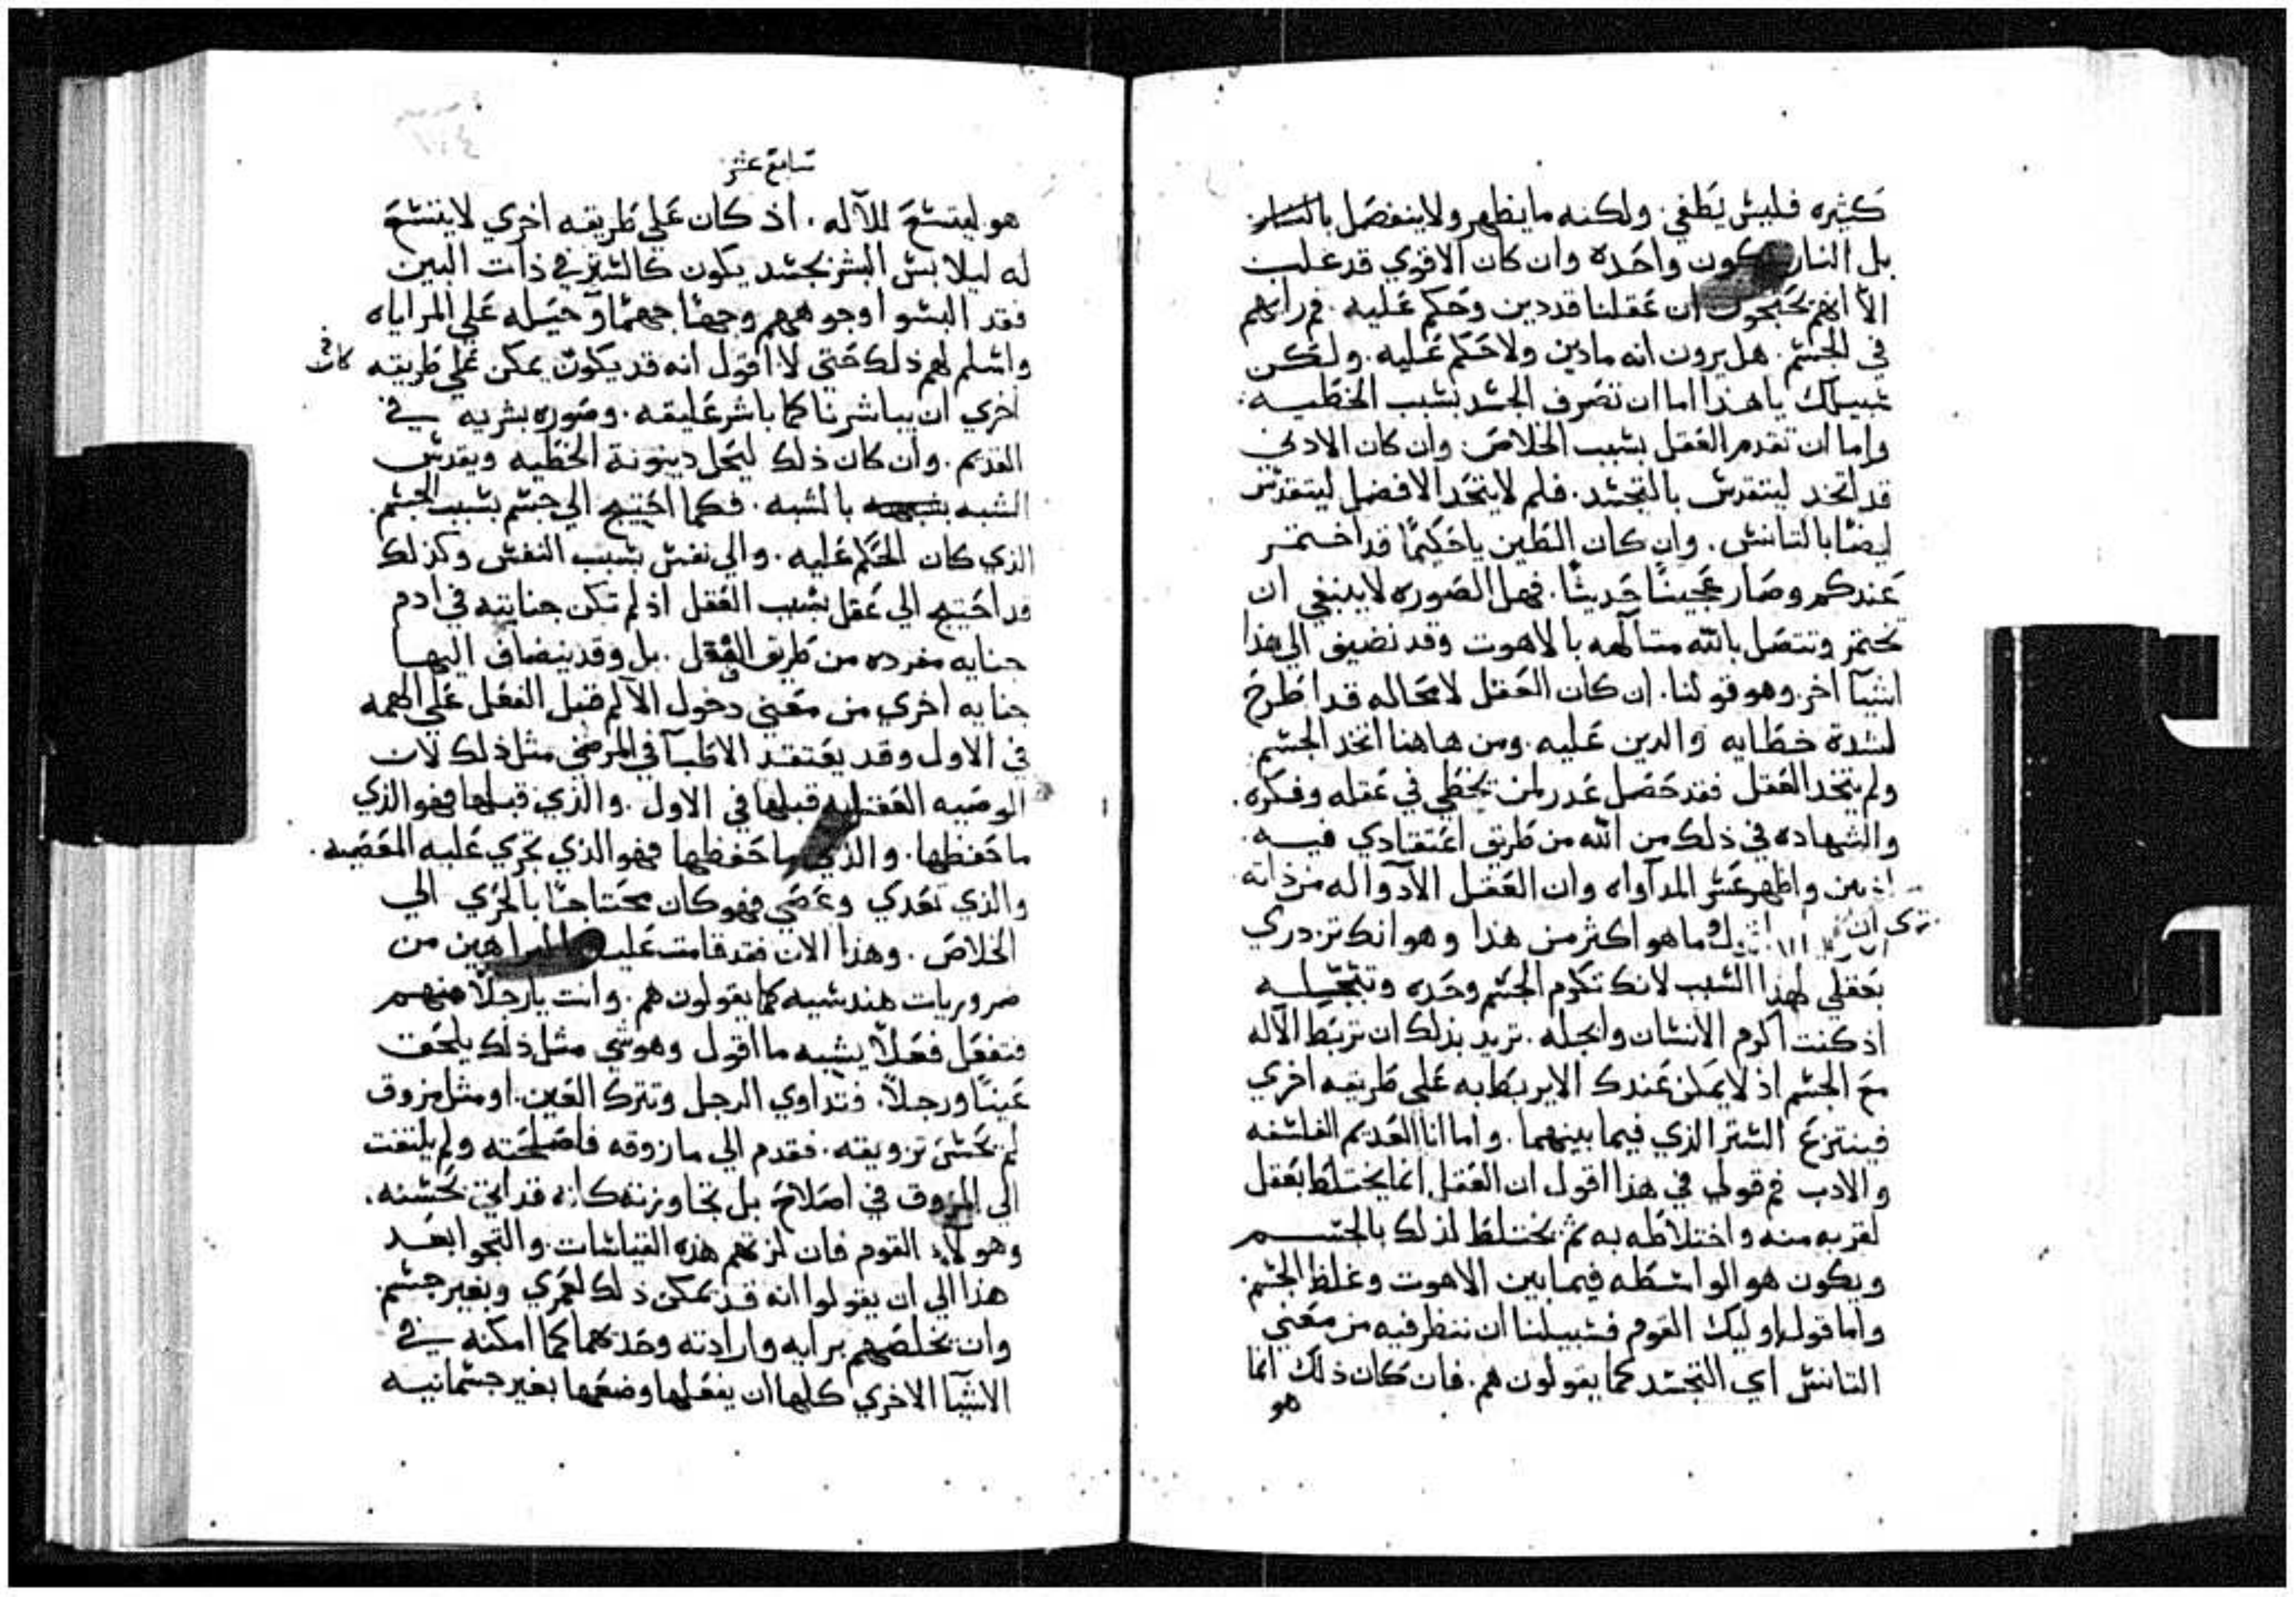 كثيره فليس يطفي. ولكنه ما يظهر ولا ينفصل بالنار.
بل النار تكون واحده وان كان الاقوي قد غلب
الا انهم يحتجون ان عقلنا قد دين وحكم عليه. فم رايهم
في الجسم. هل يرون انه ما دين ولا حكم عليه. ولكن
سبيلك يا هذا اما ان تصرف الجسد بسبب الخطيه:
واما ان تقدم العقل بسبب الخلاص. وان كان الادني
قد اتخد ليتقدس بالتجسد. فلم لا يتخد الافضل ليتقدس
ايضا بالتانس. وان كان الطين يا حكيما قد اختمر
عندكم وصار عجينا حديثا. فهل الصوره لا ينبغي ان
تختمر وتتصل بالله متالهه بالاهوت وقد نضيف الي هذا
اشيا اخر. وهو قولنا. ان كان العقل لا محاله قد اطرح
لشدة خطايه والدين عليه. ومن هاهنا اتخد الجسم.
ولم يتخد العقل فقد حصل عدر لمن يخطي في عقله وفكره.
والشهاده في ذلك من الله من طريق اعتقادي فيه.
اذ بين واظهر عسر المداواه وان العقل الا دوا له من ذاته
تري ان ما هو اكثر من هذا وهو انك تزدري
بعقلي لهذا السبب لانك تكرم الجسم وحده وتبجله
اذ كنت اكرم الانسان وابجله. تريد بذلك ان تربط الاله
مع الجسم اذ لا يمكن عندك الا يربط به علي طريقه اخري
فينتزع الستر الذي فيما بينهما. واما انا العديم الفلسفه
والادب فم قولي في هذا اقول ان العقل انما يختلط بعقل
لقربه منه واختلاطه به ثم يختلط لذلك بالجسم
ويكون هو الواسطه فيما بين الاهوت وغلظ الجسم.
واما قول اوليك القوم فسبيلنا ان ننظر فيه من معني
التانس اي التجسد كما يقولون هم. فان كان ذلك انما
هو
سابع عشر
هو ليتسع للاله. اذ كان علي طريقه اخري لا يتسع
له ليلابس البشر بجسد يكون كالستر في ذات البين
فقد البسوا وجوههم وجها جهما وحيله علي المراياه
واسلم لهم ذلك حتي لا اقول انه قد يكون يمكن علي طريقه كانت
اخري ان يباشرنا كما باشر عليقه. وصوره بشريه في
القديم. وان كان ذلك ليحل دينونة الخطيه ويقدس
الشبه بالشبه. فكما احتيج الي جسم بسبب الجسم.
الذي كان الحكم عليه. والي نفس بسبب النفس وكذلك
قد احتيج الي عقل بسبب العقل اذ لم تكن جنايته في ادم
جنايه مفرده من طريق العقل. بل وقد ينضاف اليها
جنايه اخري من معني دخول الالم قبل العقل علي الهمه
في الاول وقد يعتقد الاطبا في المرضي مثل ذلك لان
الوصيه العقل قبلها في الاول. والذي قبلها فهو الذي
ما حفظها. والذي ما حفظها فهو الذي تجري عليه المعصيه.
والذي تعدي وعصي فهو كان محتاجا بالحري الي
الخلاص. وهذا الان فقد قامت عليه البراهين من
ضروريات هندسيه كما يقولون هم. وانت يا رجلا منهم
فتفعل فعلا يشبه ما اقول وهو شي مثل ذلك يلحق
عينا ورجلا. فتداوي الرجل وتترك العين. او مثل مزوق
لم يحسن تزويقه. فقدم الي ما زوقه فاصلحته ولم يلتفت
الي المزوق في اصلاح بل تجاوزته كانه قد اتي بحسنه.
وهولاء القوم فان لزتهم هذه القياسات. والتجوا بعد
هذا الي ان يقولوا انه قد يمكن ذلك لعمري وبغير جسم.
وان يخلصهم برايه وارادته وحدهما كما امكنه في
الاشيا الاخري كلها ان يفعلها وضعها بغير جسمانيه